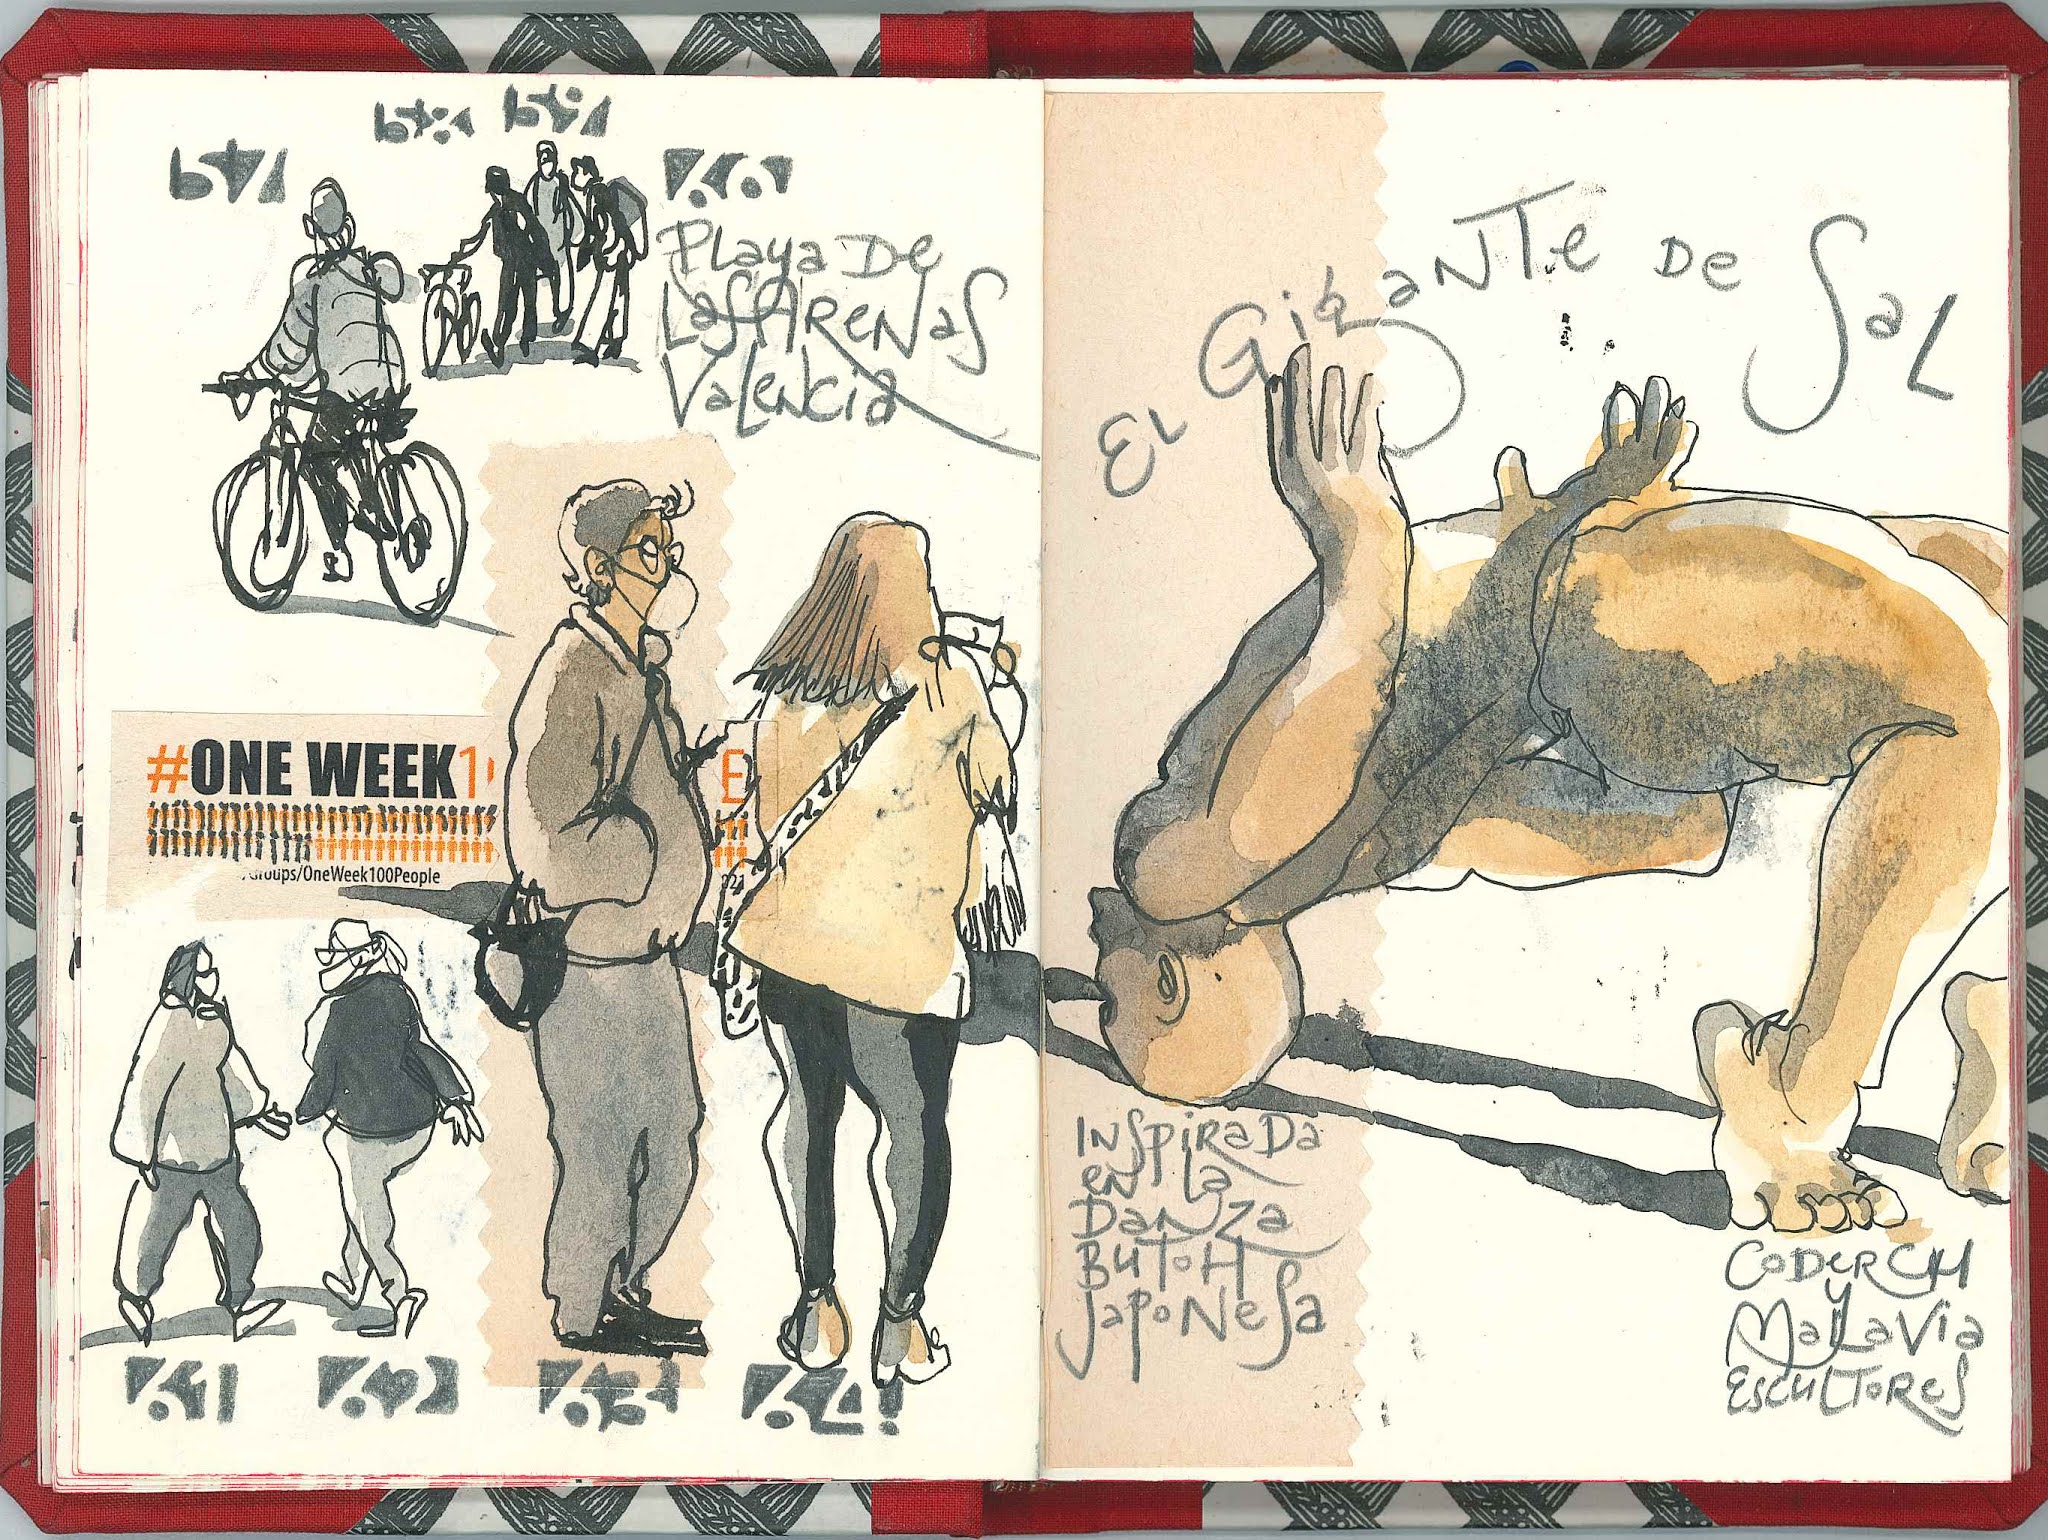 67
68 69
70
PLaya De
Las Arenas
Valencia
#ONE WEEK1
E
/Groups/OneWeek100People
021
71 72 73 74!
EL GiGaNTe De SaL
INSpiRaDa
en La
DaNza
BUTOH
JaponeSa
CODERCH
y
MaLLaVia
eSCULTOReS